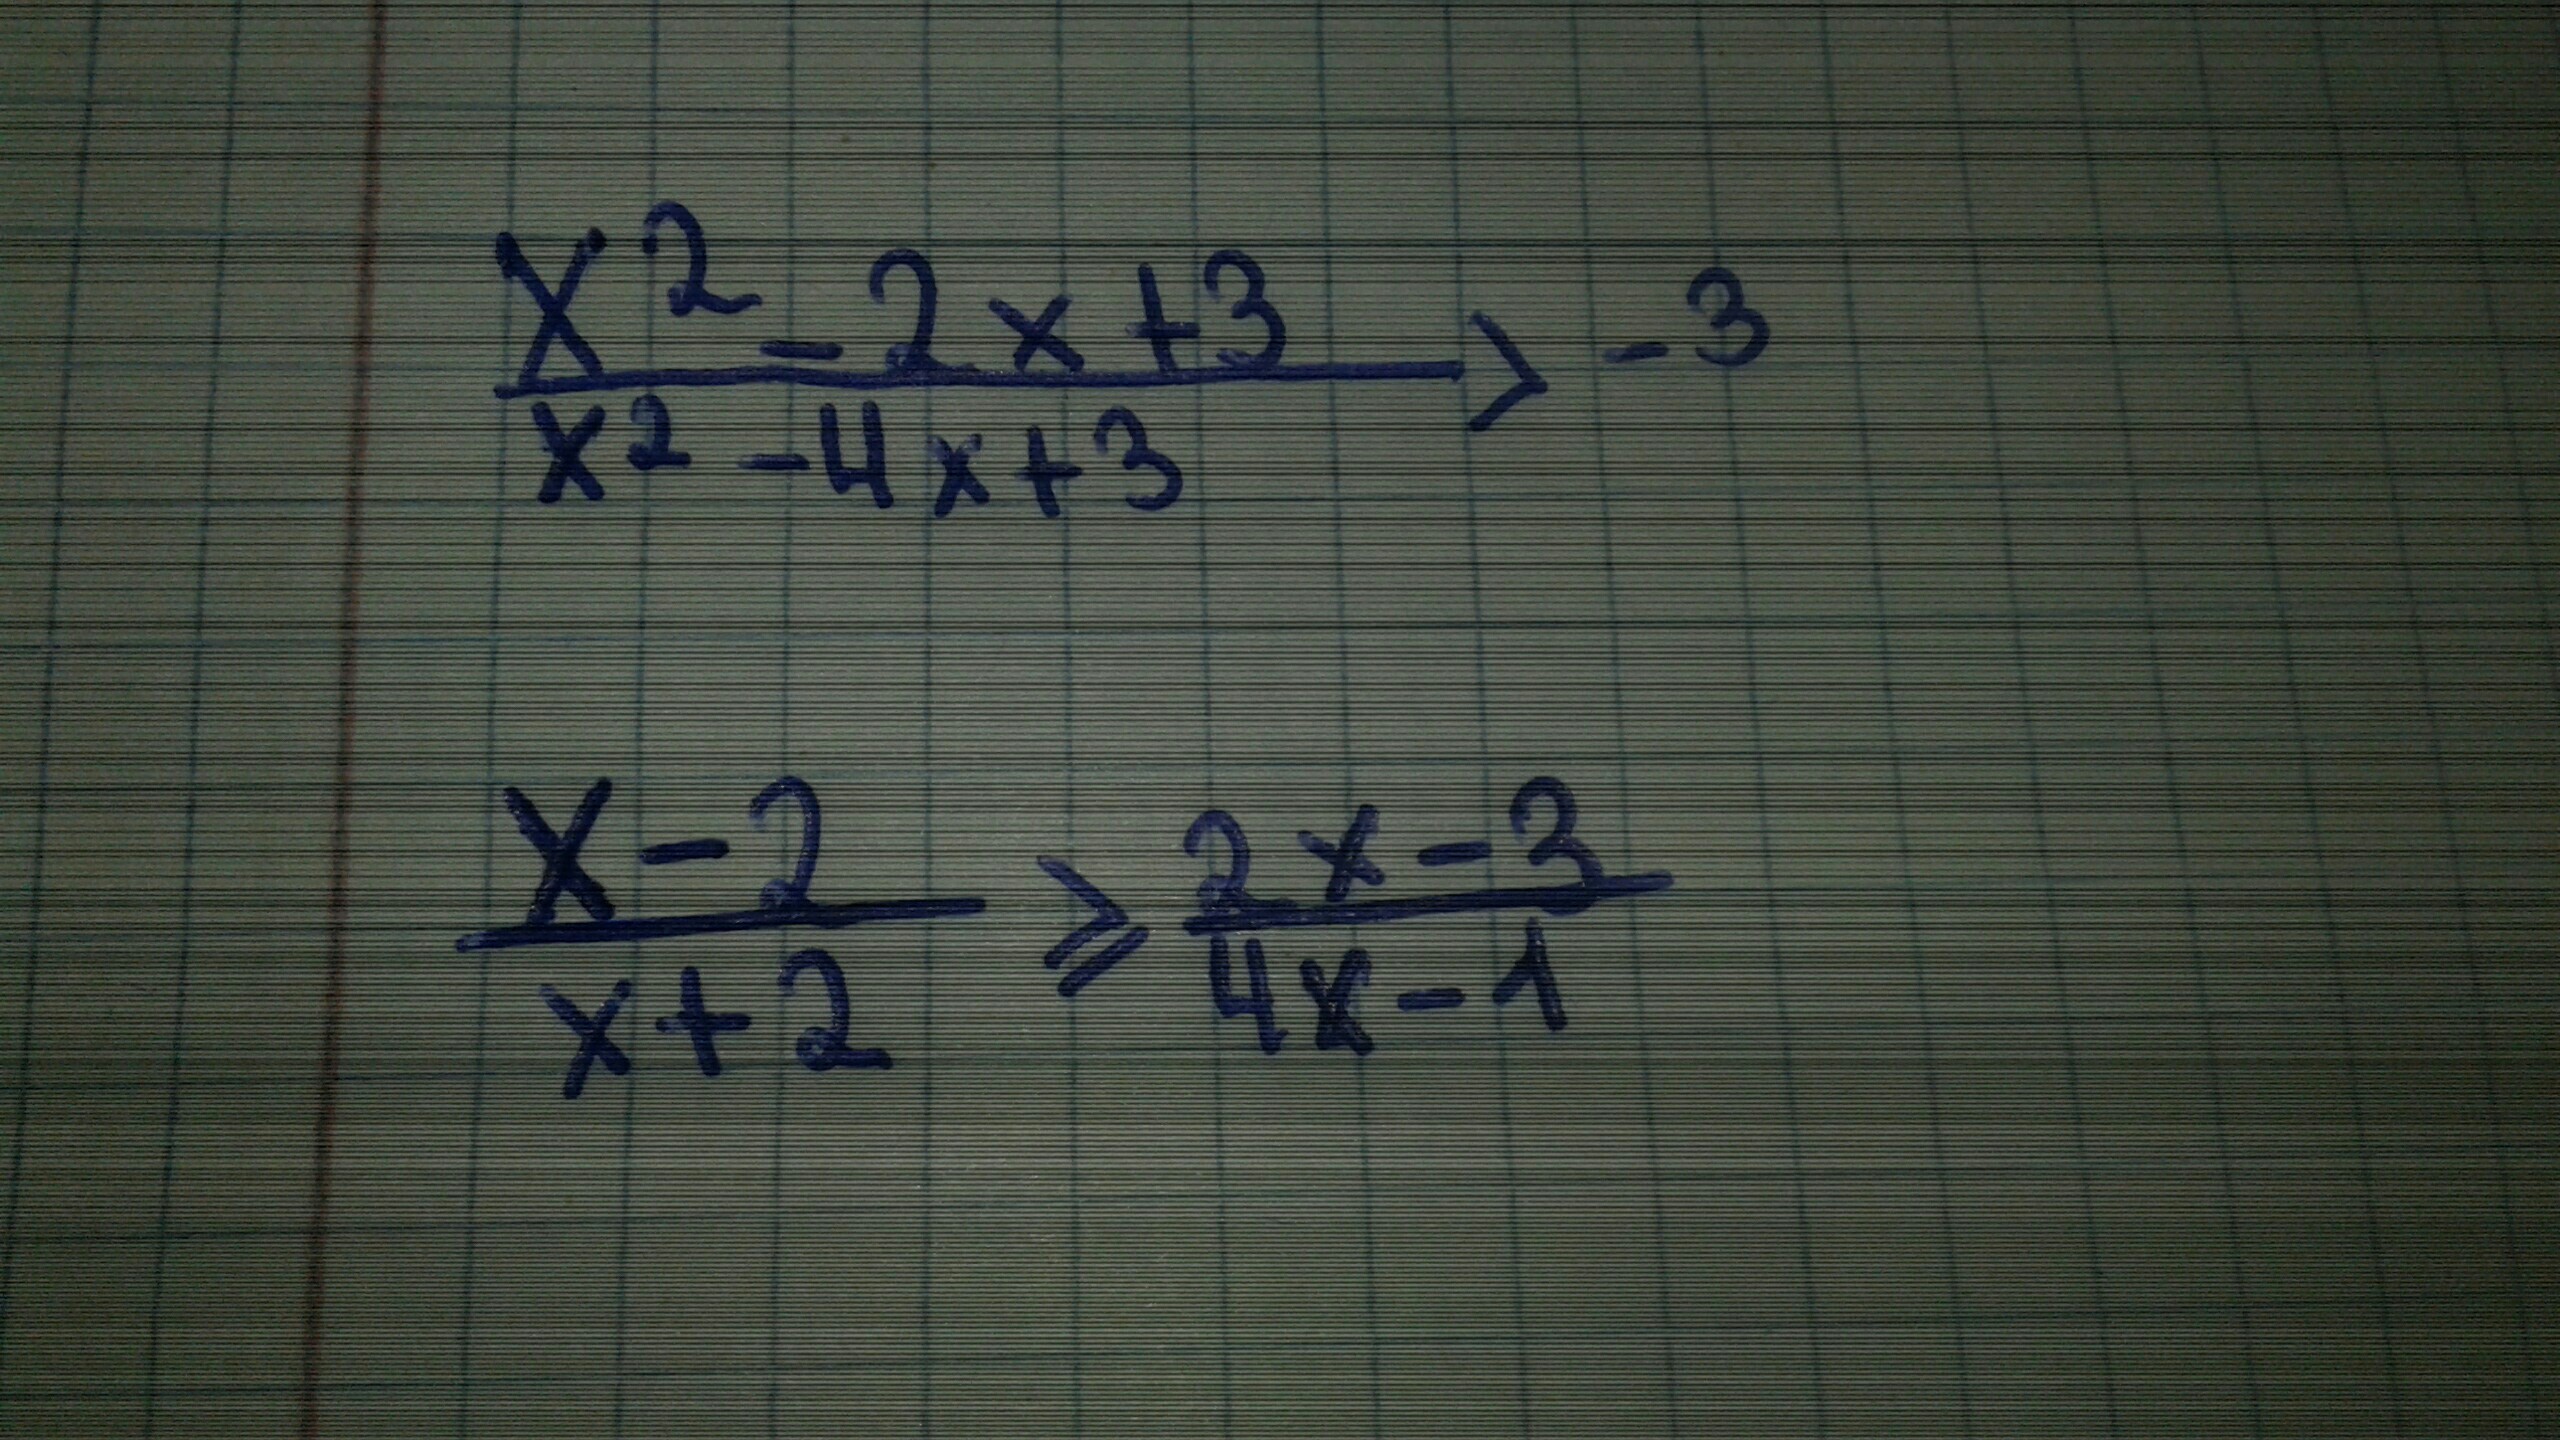 x² - 2x + 3 / x² - 4x + 3 > -3
x - 2 / x + 2 ≥ 2x - 3 / 4x - 1